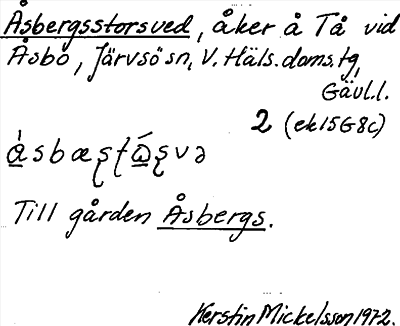 Åsbergsstorsved, åker å Tå vid
Åsbo, Järvsö sn, V. Häls. doms. tg,
Gävl. l.
2 (ek 15G8c)
Till gården Åsbergs.
Kerstin Mickelsson 1972.